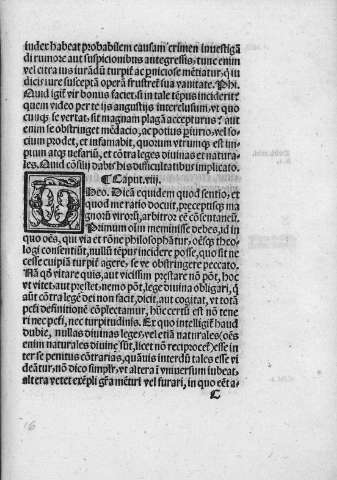 iudex habeat probabilem causam crimen inuestigã
di rumore aut suspicionibus antegressis, tunc enim
vel citra ius iurãdũ turpiť ac ꝑniciose mẽtiatur, q̃ in
dicis iure suscepta operã frustreť sua vanitate. Phi.
Quid igiť vir bonus faciet, si in tale tẽpus inciderit?
quem video per te ijs angustijs interclusum, vt quo
cunq; se vertat, sit magnam plagã accepturus? aut
enim se obstringet mẽdacio, ac potius ꝑiurio, vel so
cium prodet, et infamabit, quorum vtrumq; est im
pium atq; nefariũ, et cõtra leges diuinas et natura-
les. Quid cõsilij dabis his difficultatibus implicato.
¶ Caput .viij.
Theo. Dicã equidem quod sentio, et
quod me ratio docuit, preceptisq; ma
gnorũ virorũ, arbitror eẽ cõsentaneũ.
Primum oĩm meminisse debes, id in
quo oẽs, qui via et rõne philosophãtur, oẽsq; theo-
logi consentiũt, nullũ tẽpus incidere posse, quo sit ne
cesse cuipiã turpiť agere, se ve obstringere peccato.
Nã q̃õ vitare quis, aut vicissim prestare nõ põt, hoc
vt vitet, aut prestet, nemo põt, lege diuina obligari, q̃
aũt cõtra legẽ dei non facit, dicit, aut cogitat, vt totã
pcti definitionẽ cõplectamur, hũc certũ est nõ tene
ri nec pcti, nec turpitudinis. Ex quo intelligiť haud
dubie, nullas diuinas leges, vel etiã naturales (oẽs
enim naturales diuinę sũt, licet nõ reciproceť) esse in
ter se penitus cõtrarias, quãuis interdũ tales esse vi
deãtur, nõ dico simplr, vt altera ĩ vniuersum iubeat,
altera vetet exẽpli grã mẽtiri vel furari, in quo eẽt a-
C
16